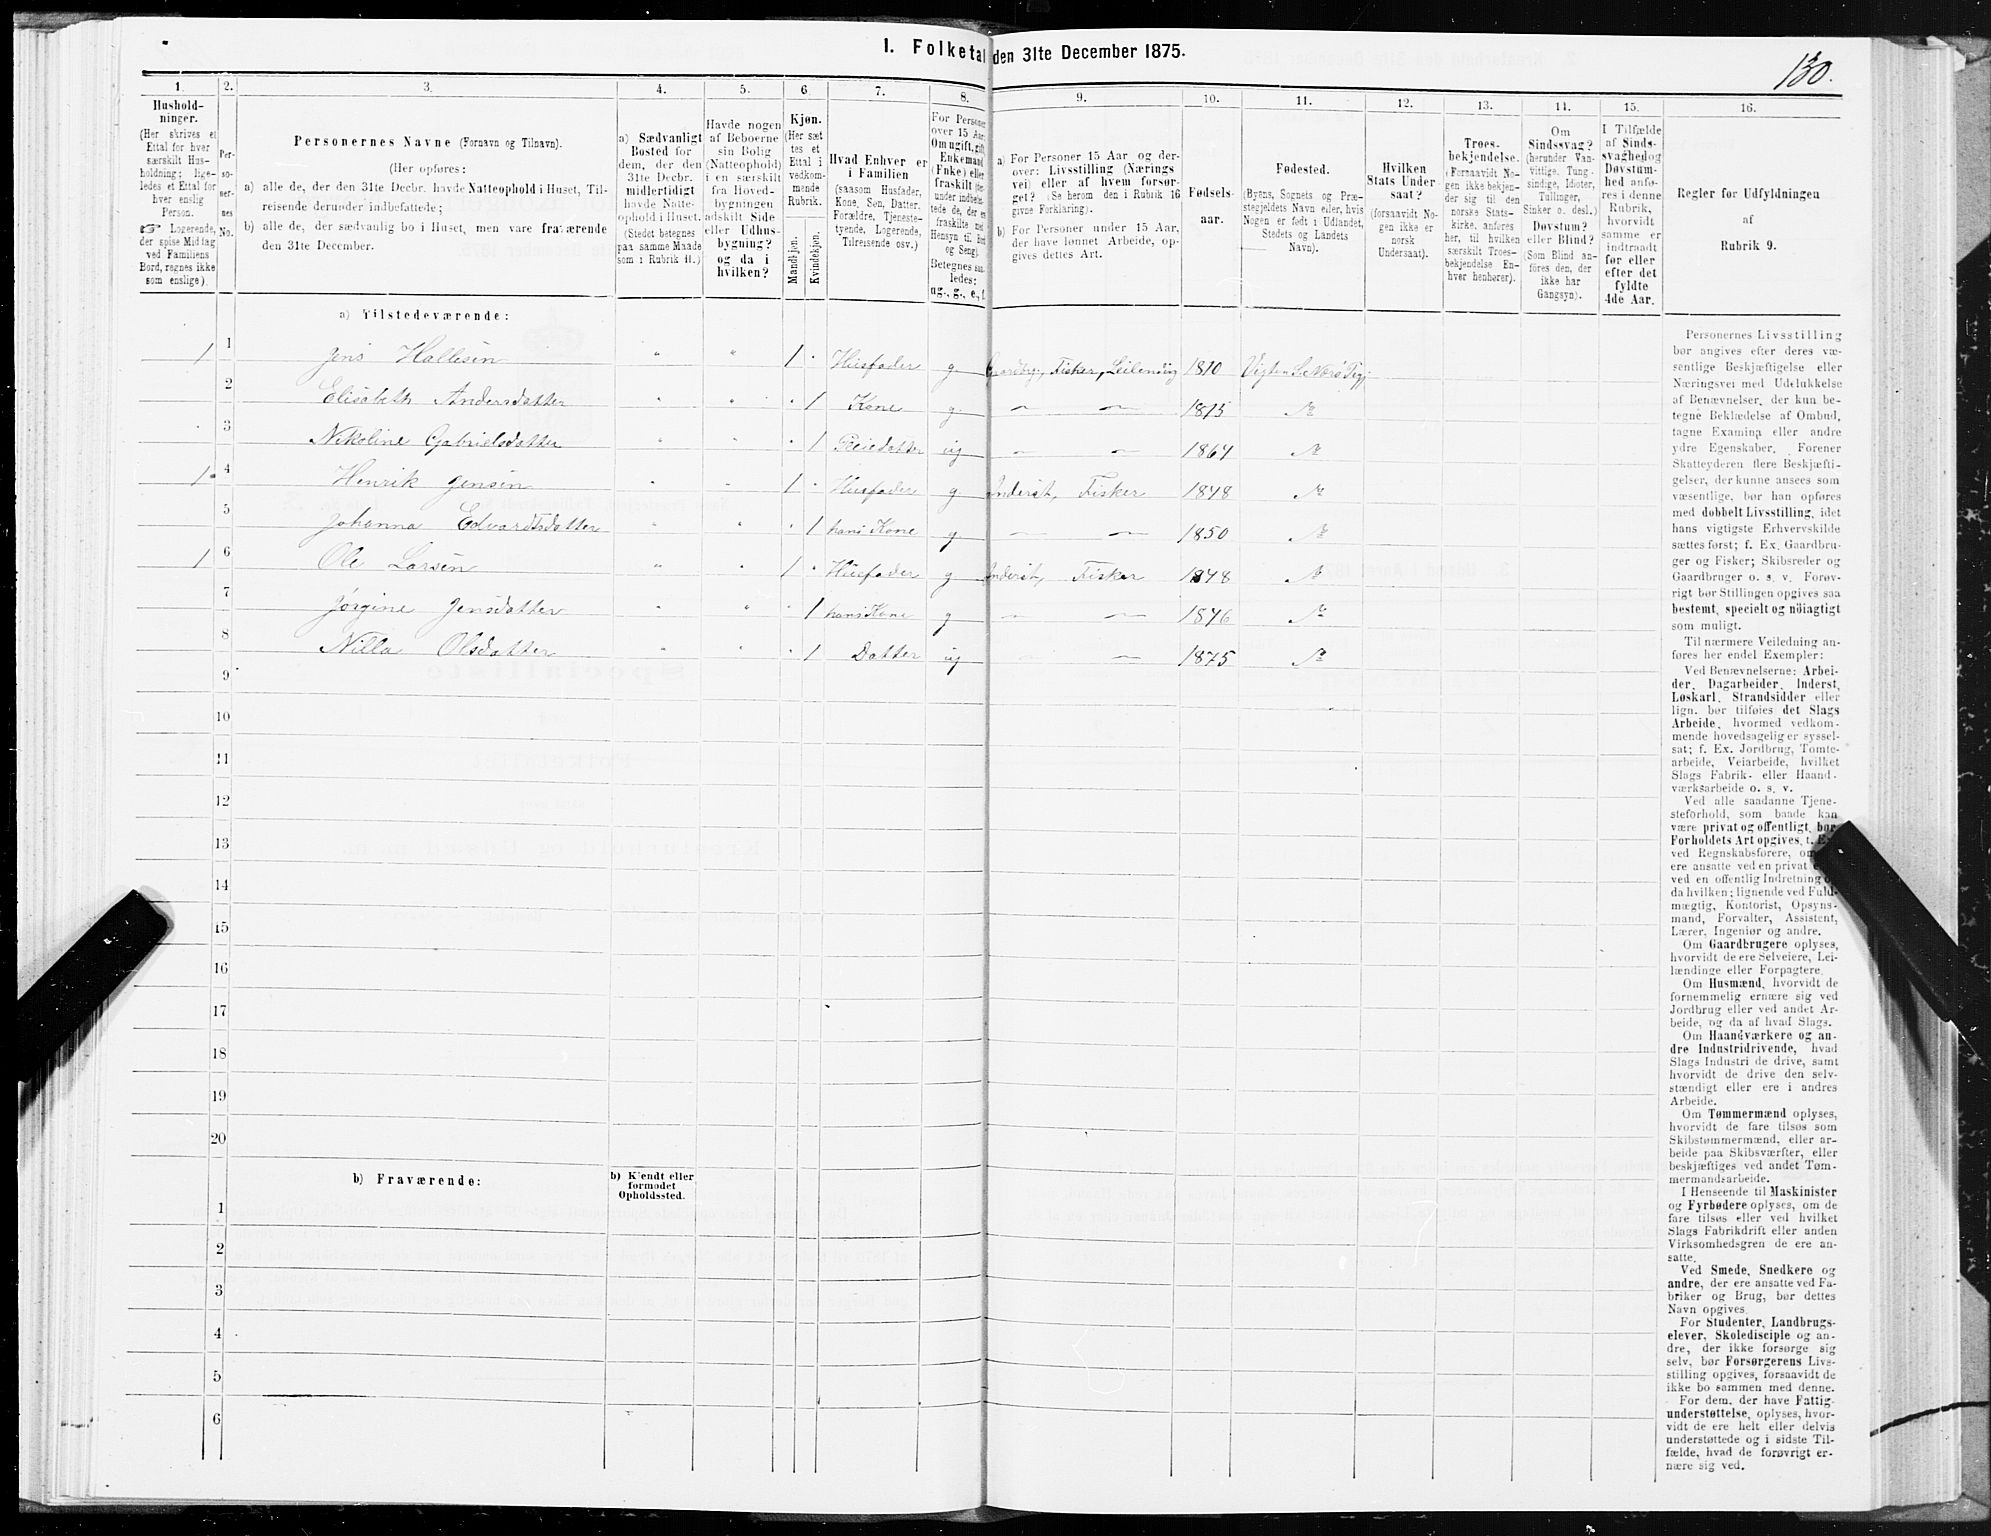 I. Folketal den 31te December 1875.
130.
1.
Hushold-
ninger.
(Her skrives et
Ettal for hver
særskilt Hus-
holdning; lige-
ledes et Ettal for
hver enslig
Person.
☞ Logerende,
der spise Middag
ved Familiens
Bord, regnes ikke
som enslige).
2.
Per-
so-
ner-
nes
No.
3.
Personernes Navne (Fornavn og Tilnavn).
(Her opføres:
a) alle de, der den 31te Decbr. havde Natteophold i Huset, Til-
reisende derunder indbefattede;
b) alle de, der sædvanlig bo i Huset, men vare fraværende
den 31te December.
4.
a) Sædvanligt
Bosted for
dem, der den
31te Decbr.
midlertidigt
havde Natte-
ophold i Huset.
(Stedet betegnes
paa samme Maade
som i Rubrik 11.)
5.
Havde nogen
af Beboerne
sin Bolig
(Natteophold)
i en særskilt
fra Hoved-
bygningen
adskilt Side
eller Udhus-
bygning?
og da i
hvilken?
6.
Kjøn.
(Her sæt
tes et
Ettal i
vedkom-
mende
Rubrik.
Mandkjøn.
Kvindekjøn.
7.
Hvad Enhver er
i Familien
(saasom Husfader,
Kone, Søn, Datter.
Forældre, Tjeneste-
tyende, Logerende,
Tilreisende osv.)
8.
For Personer
over 15 Aar:
Om ugift, gift,
Enkemand
(Enke) eller
fraskilt
Betegnes saa-
ledes:
ug., g., e., f.
9.
a) For Personer 15 Aar og der-
over: Livsstilling (Nærings
vei) eller af hvem forsør-
get? (Se herom den i Rubrik 16
givne Forklaring).
b) For Personer under 15 Aar,
der have lønnet Arbeide, op-
gives dettes Art.
10.
Fødsels-
aar.
11.
Fødested.
(Byens, Sognets og Præ-
stegjeldets Navn eller, hvis
Nogen er født i Udlandet,
Stedets og Landets
Navn).
12.
Hvilken
Stats Under
saat?
(forsaavidt No-
gen ikke er
norsk
Undersaat).
13.
Troes-
bekjendelse.
(Forsaavidt No-
gen ikke bekjen-
der sig til den
norske Stats-
kirke, anføres
her, til hvilken
særskilt Troes-
bekjendelse En-
hver henhører).
14.
Om
Sindssvag?
(herunder Van-
vittige, Tung-
sindige, Idioter,
Tullinger,
Sinker o. desl.)
Døvstum?
eller Blind?
(Som Blind an-
føres den, der
ikke har
Gangsyn).
15.
I Tilfælde
af Sinds-
svaghed og
Døvstum-
hed anfø-
res i denne
Rubrik,
hvorvidt
samme er
indtraadt
før eller
efter det
fyldte
4de Aar.
16.
Regler for Udfyldningen
af
Rubrik 9.
a) Tilstedeværende:
1 1 Jens Hallesen " " 1 · Husfader g Gaardbr., Fisker, Leilending 1810
2 Elisabeth Andersdatter " " · 1 Kone g. — — 1815
3 Nikoline Gabrielsdatter " " · 1 Pleiedatter ug — — 1864
1 4 Henrik Jensen " " 1 · Husfader g. Inderst, Fisker 1848
5 Johanna Edvardtsdatter " " · 1 hans Kone g — — 1850
1 6 Ole Larsen " " 1 · Husfader g Inderst, Fisker 1848
7 Jørgine Jensdatter " " · 1 hans Kone g — — 1846
8 Nilla Olsdatter " " · 1 Datter ug — — 1875
9
10
11
12
13
14
15
16
17
18
19
20
b) Fraværende:
b) Kjendt eller
formodet
Opholdssted.
1
2
3
4
5
6
Personernes Livsstilling
bør angives efter deres væ-
sentlige Beskjæftigelse eller
Næringsvei med Udelukkelse
af Benævnelser, der kun be-
tegne Beklædelse af Ombud,
tagne Examina eller andre
ydre Egenskaber. Forener
Skatteyderen flere Beskjæfti-
gelser, der kunne ansees som
væsentlige, bør han opføres
med dobbelt Livsstilling, idet
hans vigtigste Erhvervskilde
sættes først; f. Ex. Gaardbru-
ger og Fisker; Skibsreder og
Gaardbruger o. s. v. Forøv-
rigt bør Stillingen opgives saa
bestemt, specielt og nöiagtigt
som muligt.
Til nærmere Veiledning an-
føres her endel Exempler:
Ved Benævnelserne: Arbei-
der, Dagarbeider, Inderst,
Løskarl, Strandsidder eller
lign. bør tilføies det Slags
Arbeide, hvormed vedkom-
mende hovedsagelig er syssel-
sat; f. Ex. Jordbrug, Tomte-
arbeide, Veiarbeide, hvilket
Slags Fabrik- eller Haand-
værksarbeide o. s. v.
Ved alle saadanne Tjene-
steforhold, som baade kan
være privat og offentligt, bør
Forholdets Art opgives, t. Ex.
ved Regnskabsførere, om
ere ansatte ved en privat
ved en offentlig Indretning
da hvilken; lignende ved Fuld-
mægtig, Kontorist, Opsyns-
mand, Forvalter, Assistent,
Lærer, Ingeniør og andre.
Om Gaardbrugere oplyses,
hvorvidt de ere Selveiere, Lei-
lændinge eller Forpagtere.
Om Husmænd, hvorvidt de
fornemmelig ernære sig ved
Jordbrug eller ved andet Ar-
beide, og da af hvad Slags.
Om Haandværkere og an-
dre Industridrivende, hvad
Slags Industri de drive, samt
hvorvidt de drive den selv-
stændigt eller ere i andres
Arbeide.
Om Tømmermænd oplyses,
hvorvidt de fare tilsøs som
Skibstømmermænd, eller ar-
beide paa Skibsværfter, eller
beskjæftiges ved andet Tøm-
mermandsarbeide.
I Henseende til Maskinister
og Fyrbødere oplyses, om de
fare tilsøs eller ved hvilket
Slags Fabrikdrift eller anden
Virksomhedsgren de ere an-
satte.
Ved Smede, Snedkere og
andre, der ere ansatte ved Fa-
briker og Brug, bør dettes
Navn opgives.
For Studenter, Landbrugs-
elever, Skoledisciple og an-
dre, der ikke forsørge sig
selv, bør Forsørgerens Livs-
stilling opgives, forsaavidt de
ikke bo sammen med denne.
For dem, der have Fattig-
understøttelse, oplyses, hvor-
vidt de ere helt eller delvis
understøttede og i sidste Til-
fælde, hvad de forøvrigt er-
nære sig ved.